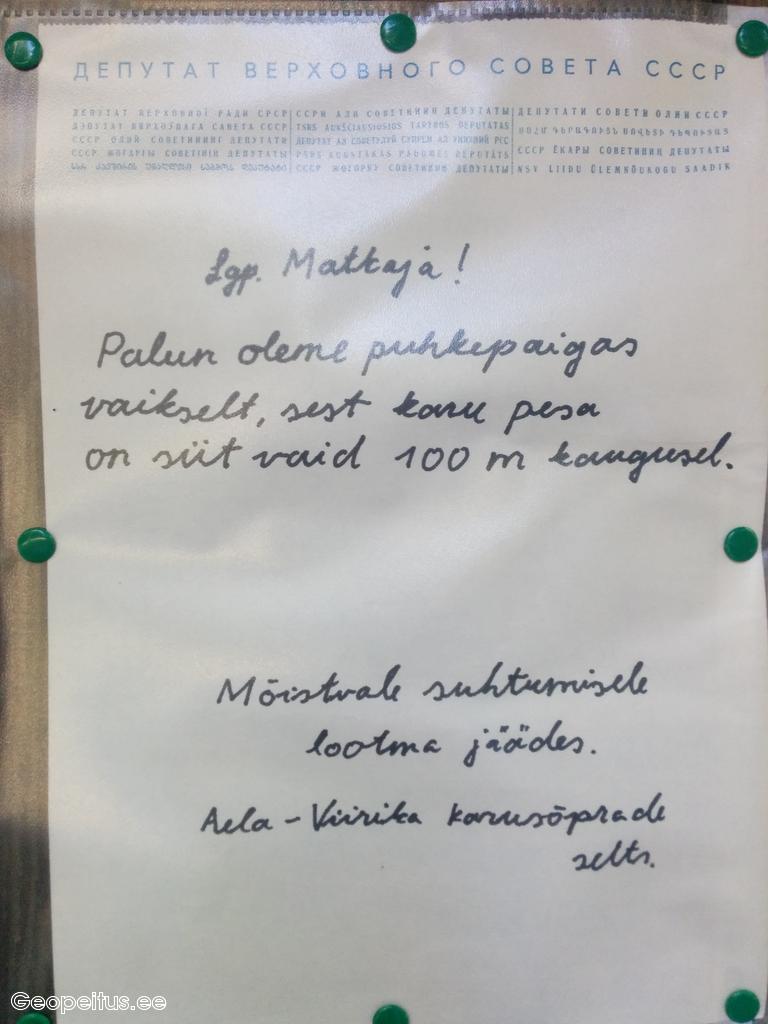 ДЕПУТАТ ВЕРХОВНОГО СОВЕТА СССР
ДЕПУТАТ ВЕРХОВНОЇ РАДИ СРСР
ДЭПУТАТ ВЯРХОЎНАГА САВЕТА СССР
СССР ОЛИЙ СОВЕТИНИНГ ДЕПУТАТИ
СССР ЖОҒАРҒЫ СОВЕТІНІҢ ДЕПУТАТЫ
ССРИ АЛИ СОВЕТИНИН ДЕПУТАТЫ
TSRS AUKŠČIAUSIOSIOS TARYBOS DEPUTATAS
ДЕПУТАТ АЛ СОВЕТУЛУЙ СУПРЕМ АЛ УНИУНИЙ РСС
PSRS AUGSTĀKĀS PADOMES DEPUTĀTS
СССР ЖОГОРКУ СОВЕТИНИН ДЕПУТАТЫ
ДЕПУТАТИ СОВЕТИ ОЛИИ СССР
СССР ЁКАРЫ СОВЕТИНИҢ ДЕПУТАТЫ
NSV LIIDU ÜLEMNÕUKOGU SAADIK
Lgp. Matkaja!
Palun oleme puhkepaigas
vaikselt, sest karu pesa
on siit vaid 100 m kaugusel.
Mõistvale suhtumisele
lootma jäädes.
Aela-Viirika karusõprade
selts.
Geopeitus.ee